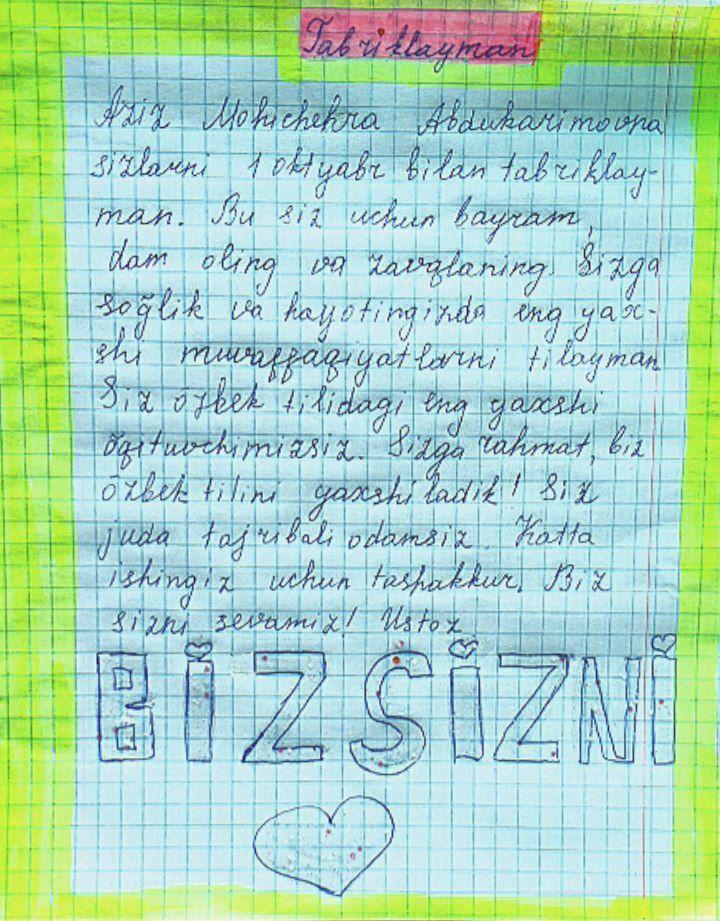 Tabriklayman
Aziz Mohichehra Abdukarimovna
sizlarni 1 oktyabr bilan tabriklay-
man. Bu siz uchun bayram,
dam oling va zavqlaning. Sizga
soğlik va hayotingizda eng yax-
shi muvaffaqiyatlarni tilayman
Siz õzbek tilidagi eng yaxshi
õqituvchimizsiz. Sizga rahmat, biz
õzbek tilini yaxshiladik! Siz
juda tajribali odamsiz. Katta
ishingiz uchun tashakkur. Biz
sizni sevamiz! Ustoz
BİZ SİZNİ